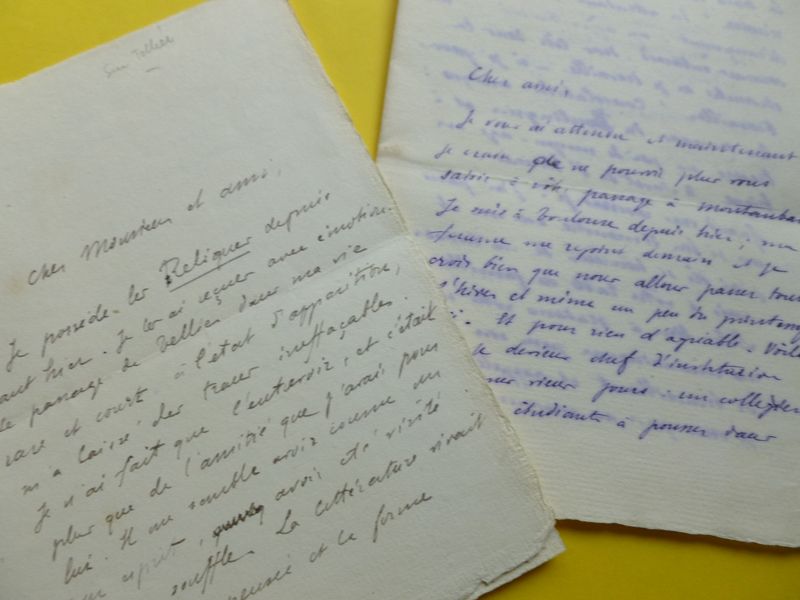 Cher Monsieur et ami,
Je possède les Reliques depuis
avant hier. Je les ai reçues avec émotion.
Le passage de Tellier dans ma vie
rare et court à l'état d'apparition,
m'a laissé des traces ineffaçables.
Je n'ai fait que l'entrevoir, et c'était
plus que de l'amitié que j'avais pour
lui. Il me semble avoir comme un
esprit, avoir été visité
souffle. La littérature vivait
pensée et la forme
Cher ami,
Je vous ai attendu et maintenant
je crains de ne pouvoir plus vous
saisir à votre passage à Montauban
Je suis à Toulouse depuis hier; ma
femme me rejoint demain et je
crois bien que nous allons passer tout
l'hiver et même un peu du printemps
Et pour rien d'agréable. Voilà
le dernier chef d'institution
mes vieux jours : un collégien
étudiants à pousser dans